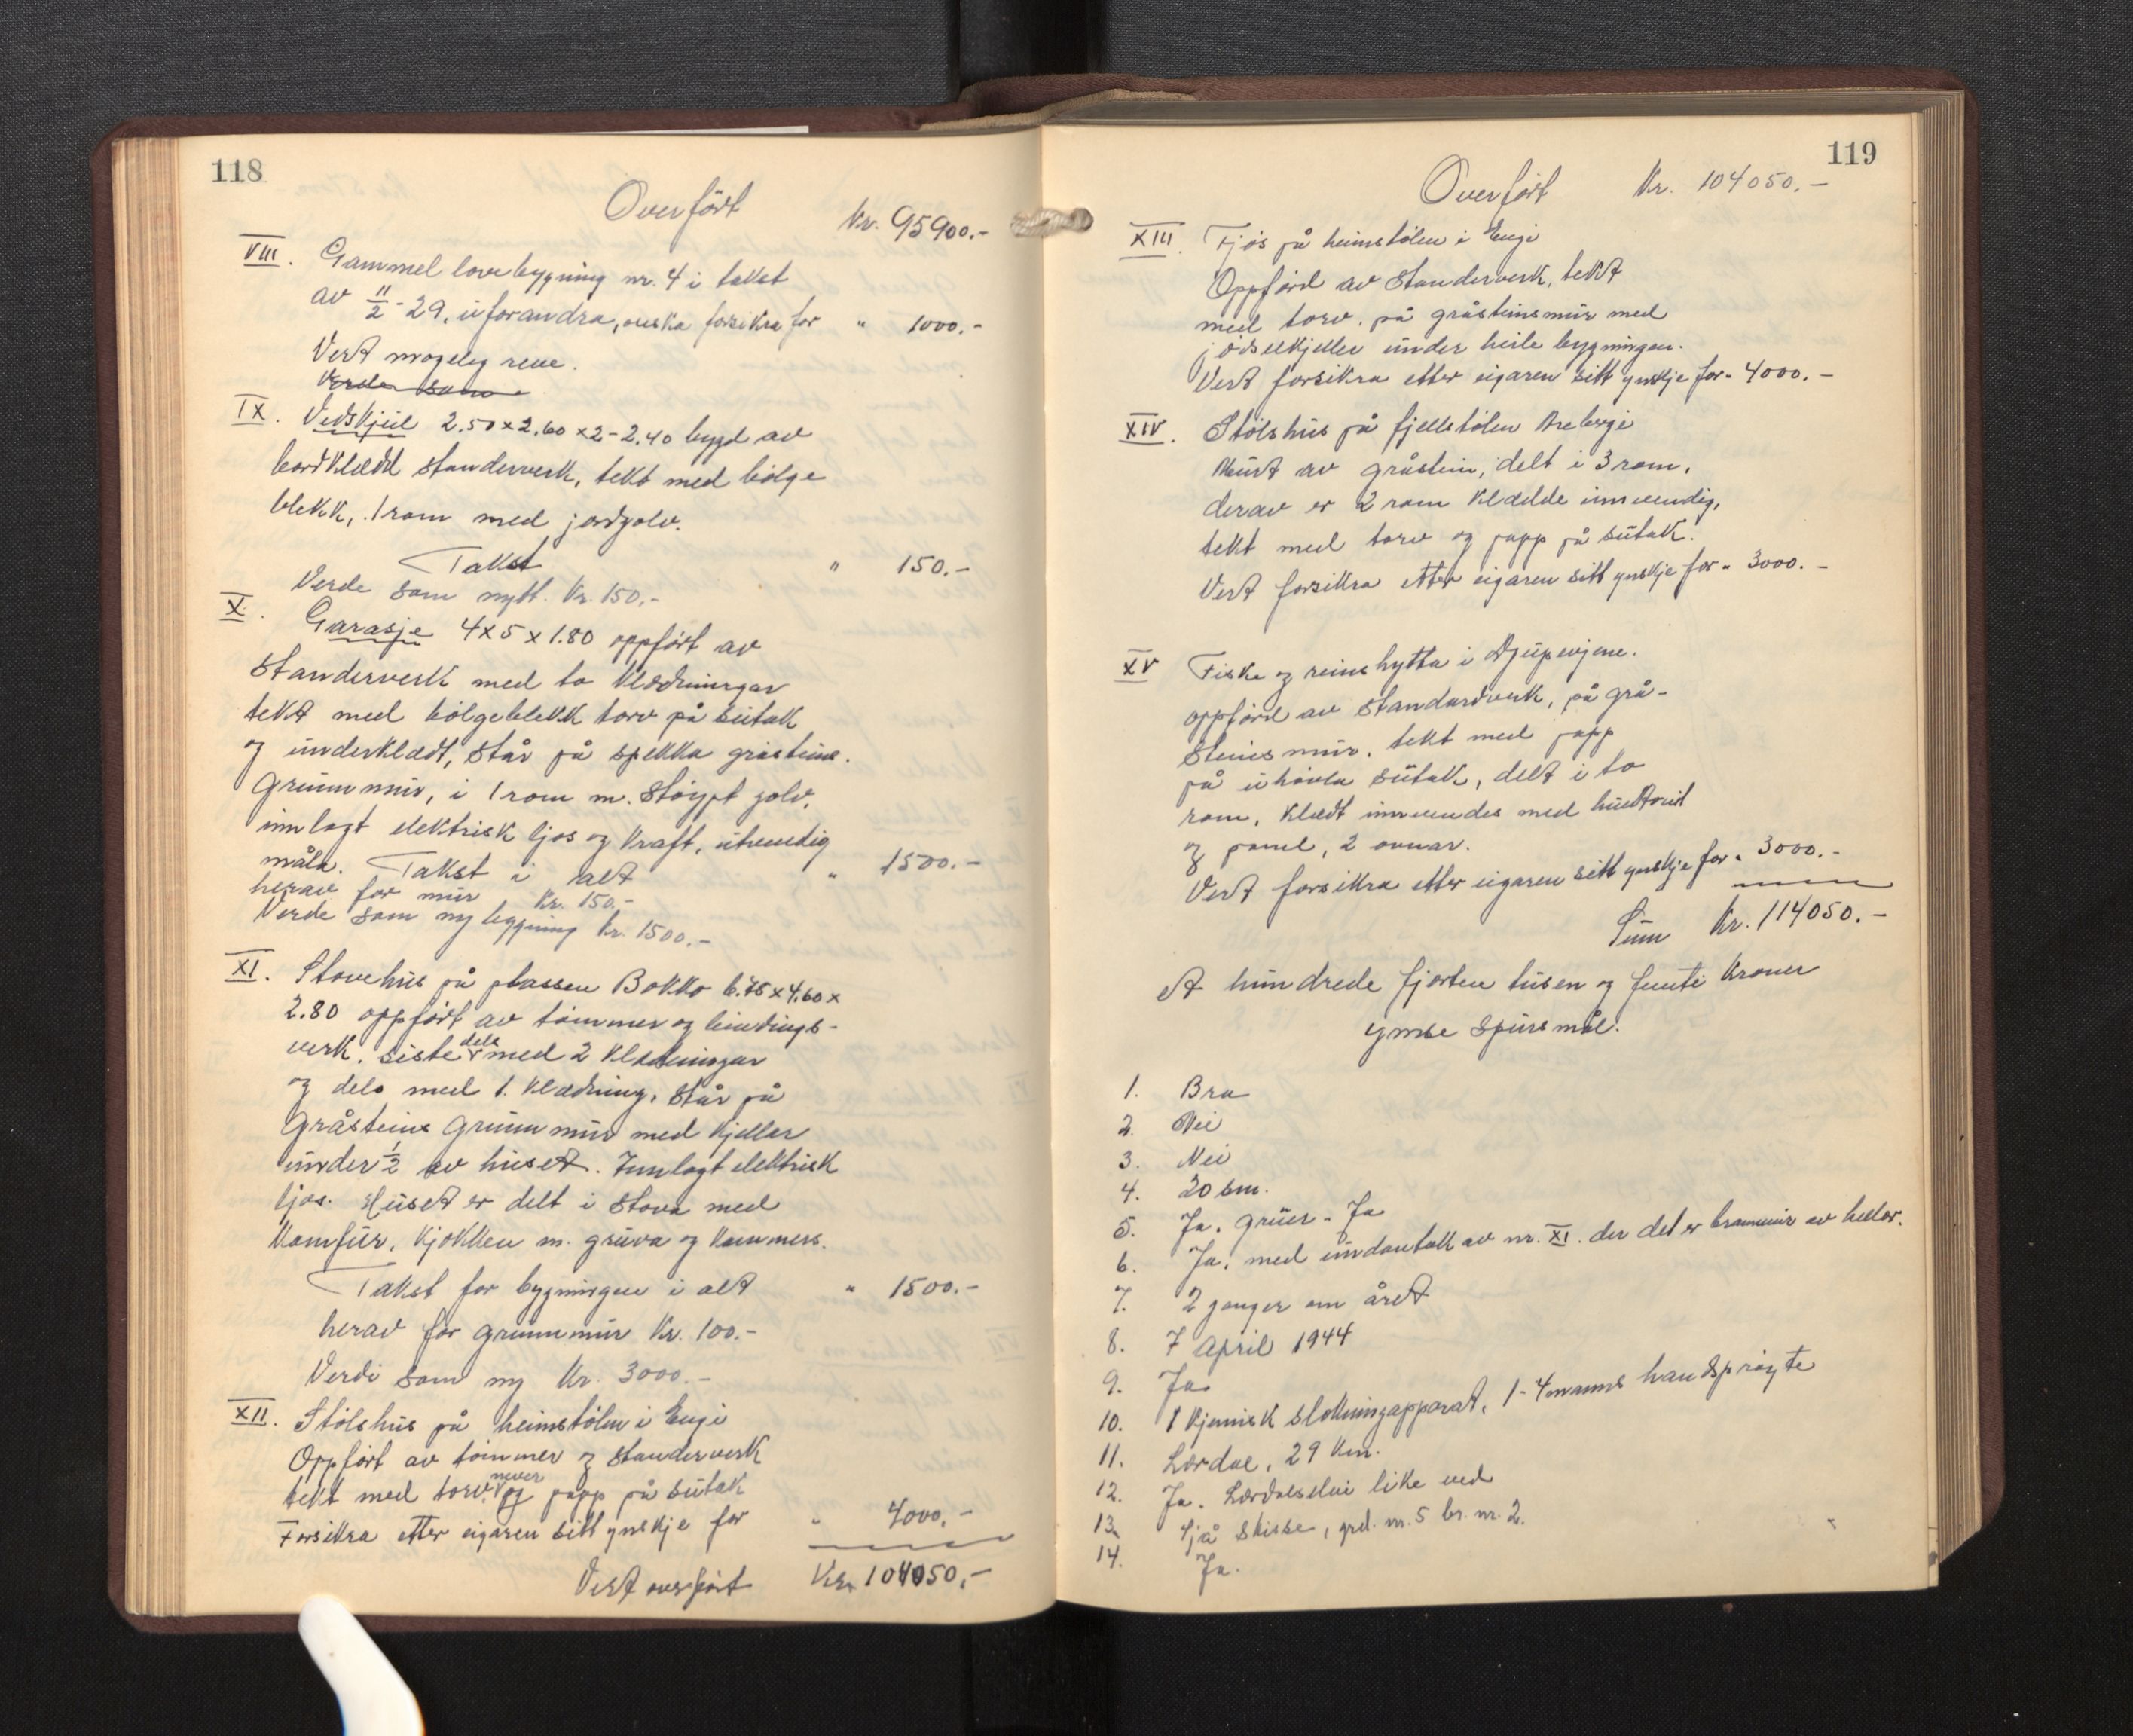 118
Overført
Kr. 95900.-
VIII. Gammel lovebygning nr. 4 i takst
av 11/2-29, uforandra, onska forsikra for " 1000.-
Vert mogeleg reve.
Verde som
IX. Vedskjul 2.50 x 2.60 x 2-2.40 bygd av
bordklædd standerverk, tekt med bølge
blekk, 1 rom med jordgolv.
Takst " 150.-
Verde som nytt. Kr. 150.-
X. Garasje 4 x 5 x 1.80 oppført av
Standerverk med to klædningar
tekt med bølgeblekk torv på sutak
og underklædt, står på spekka gråsteins.
Grunnmur, i 1 rom m. støypt golv,
innlagt elektrisk ljos og kraft, utvendig
måla. Takst i alt " 1500.-
herav for mur Kr. 150.-
Verde som ny bygning kr. 1500.-
XI. Stovehus på plassen Bokko 6.75 x 4.60 x
2.80 oppført av tømmer og bindings-
verk. siste dels med 2 klædningar
og dels med 1. klædning, står på
Gråsteins Grunnmur med kjellar
under 1/2 av huset. Innlagt elektrisk
ljos. Huset er delt i stova med
Komfur, kjøkken m. gruva og kammers.
Takst for bygningen i alt " 1500.-
herav for grunnmur Kr. 100.-
Verdi som ny Kr. 3000.-
XII. Stølshus på heimstølen i Eugi
Oppført av tømmer og standerverk
tekt med torv, never og papp på sutak
Forsikra etter eigaren sitt ynskje for " 4000.-
Vert overført Kr. 104050,-
119
Overført Kr. 104050.-
XIII. Fjøs på heimstølen i Eugi
Oppførd av Standerverk, tekt
med torv. på gråsteinsmur med
jødselkjeller under heile bygningen.
Vert forsikra etter eigaren sitt ynskje for " 4000.-
XIV. Stølshus på fjellstølen Brebergi
Murt av gråstein, delt i 3 rom,
derav er 2 rom klædde innvendig,
tekt med torv og papp på sutak.
Vert forsikra etter eigaren sitt ynskje for " 3000.-
XV Fiske og reinshytta i Djupevjene.
oppførd av standardverk, på grå-
steins mur. tekt med papp
på uhøvla sutak, delt i to
rom, klædt innvendes med huntonit
og panel, 2 omnar.
Vert forsikra etter eigaren sitt ynskje for " 3000.-
Sum Kr. 114050.-
Et hundrede fjorten tusen og femti kroner
Ymse Spursmål.
1. Bra
2. Nei
3. Nei
4. 20 sm.
5. Ja. gruer - Ja
6. Ja, med undantak av nr. XI. der det er brannmur av heller.
7. 2 gonger om året
8. 7 April 1944
9. Ja
10. 1 kjemisk slokningapparat, 1-4manns handsprøyte
11. Lærdal, 29 km.
12. Ja. Lærdalselvi like ved
13. Sjå skisse, grd. nr. 5 br. nr. 2.
14. Ja.